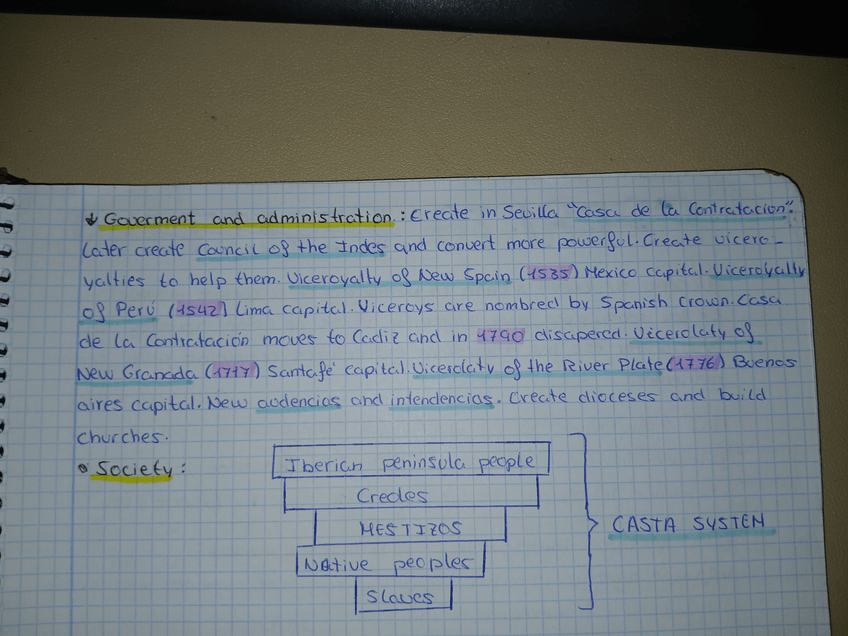 ↓ Goverment and administration: Create in Sevilla "Casa de la Contratacion".
Later create Council of the Indes and convert more powerful. Create vicero-
yalties to help them. Viceroyalty of New Spain (1535) Mexico capital. Viceroyally
of Perú (1542) Lima capital. Viceroys are nombred by Spanish crown. Casa
de la Contratación moves to Cadiz and in 1790 disapered. Vicerolaty of
New Granada (1717) Santafé capital. Vicerolaty of the River Plate (1776) Buenos
aires capital. New audencias and intendencias. Create dioceses and build
churches.
• Society:
Iberian peninsula people
Creoles
MESTIZOS
Native peoples
Slaves
CASTA SYSTEM